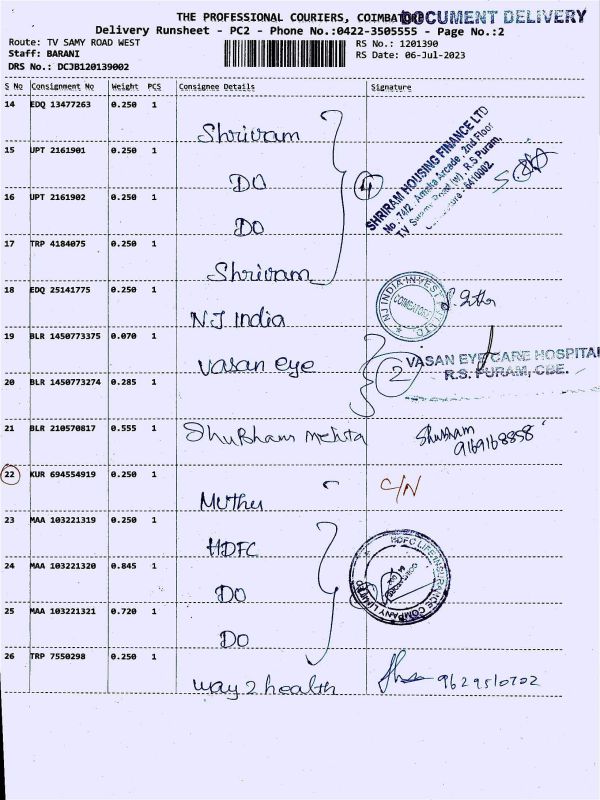 THE PROFESSIONAL COURIERS, COIMBATO
DOCUMENT DELIVERY
Delivery Runsheet - PC2 - Phone No.:0422-3505555 - Page No.:2
Route: TV SAMY ROAD WEST
RS No.: 1201390
Staff: BARANI
RS Date: 06-Jul-2023
DRS No.: DCJB120139002
S No Consignment No Weight PCS Consignee Details Signature
14 EDQ 13477263 0.250 1
Shriram
15 UPT 2161901 0.250 1
DO
16 UPT 2161902 0.250 1
DO
4
SHRIRAM HOUSING FINANCE LTD
No. 74/2, Ameka Arcade, 2nd Floor
T.V. Swamy Road (W), R.S Puram,
641002.
17 TRP 4184075 0.250 1
Shriram
18 EDQ 25141775 0.250 1
NJ India
NJ INDIA INVEST
COIMBATORE
19 BLR 1450773375 0.070 1
Vasan eye
2
VASAN EYE CARE HOSPITAL
R.S. PURAM, CBE.
20 BLR 1450773274 0.285 1
21 BLR 210570817 0.555 1
Shubham mehta
Shubham
9169168858
22 KUR 694554919 0.250 1
Muthu
C/N
23 MAA 103221319 0.250 1
HDFC
24 MAA 103221320 0.845 1
DO
HDFC LIFE INSURANCE COMPANY LIMITED
25 MAA 103221321 0.720 1
DO
26 TRP 7550298 0.250 1
way 2 health
9629510702